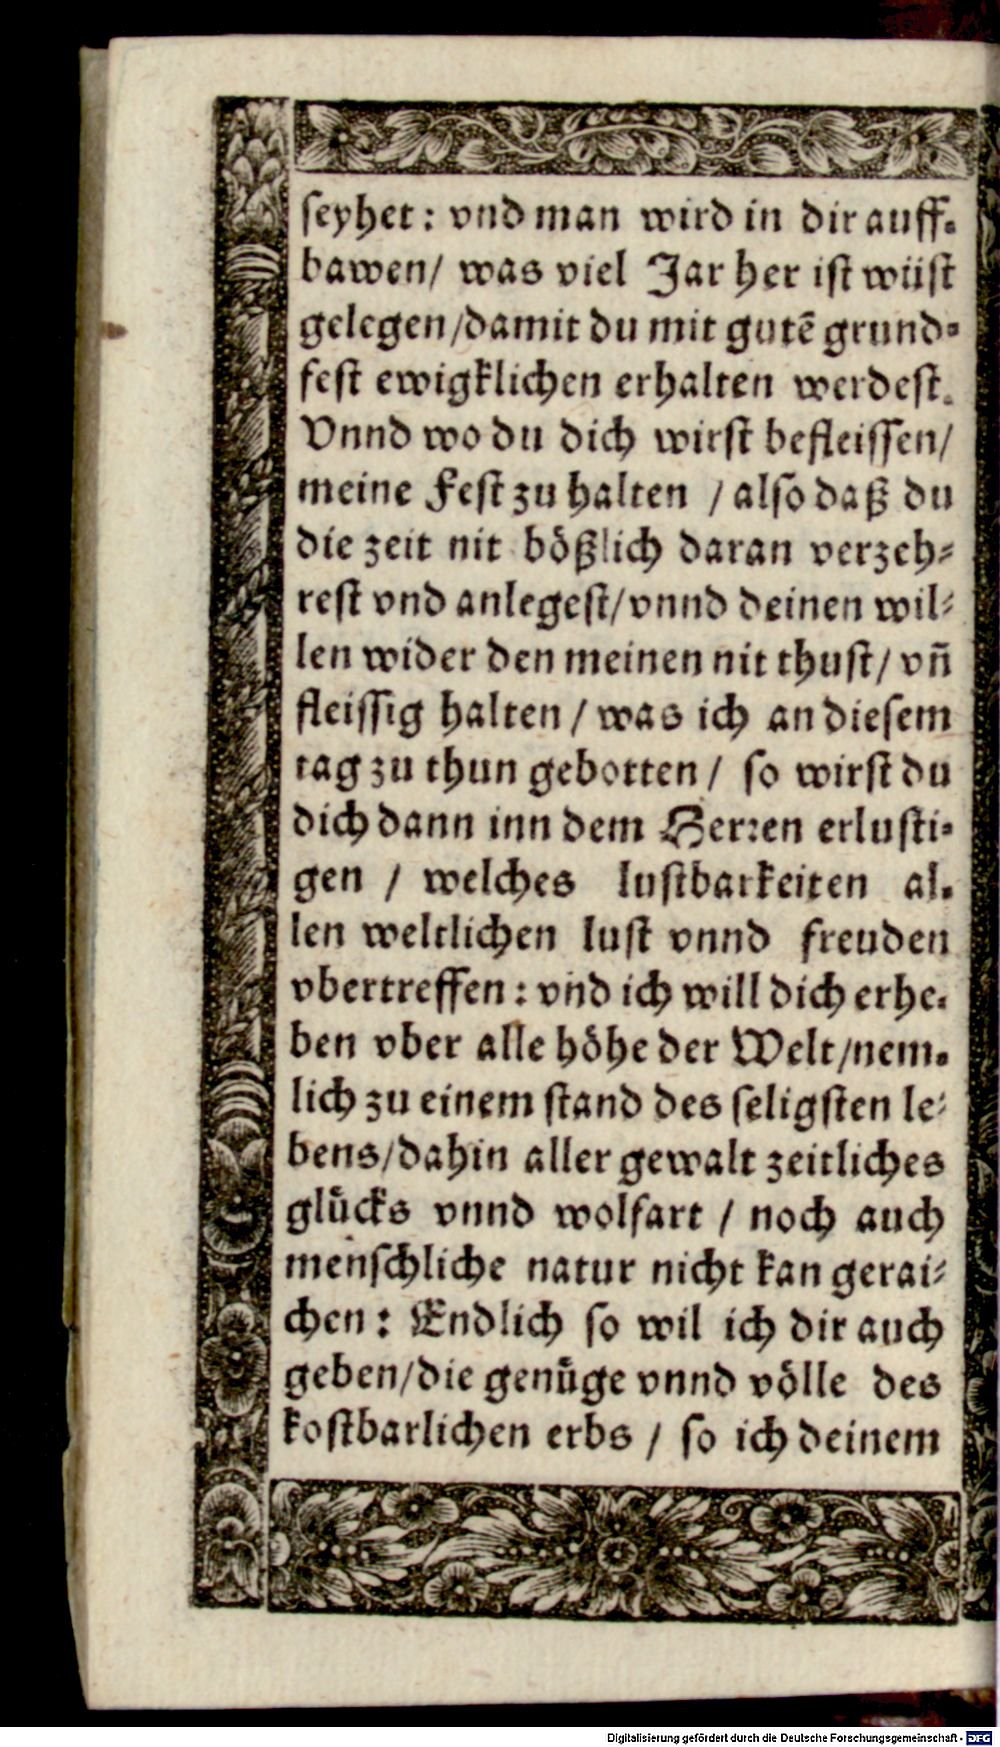 seyhet: vnd man wird in dir auff-
bawen/ was viel Jar her ist wüst
gelegen/damit du mit gutē grund-
fest ewigklichen erhalten werdest.
Vnnd wo du dich wirst befleissen/
meine Fest zu halten / also daß du
die zeit nit bößlich daran verzeh-
rest vnd anlegest/vnnd deinen wil-
len wider den meinen nit thust/ vñ
fleissig halten / was ich an diesem
tag zu thun gebotten / so wirst du
dich dann inn dem Herren erlusti-
gen / welches lustbarkeiten al-
len weltlichen lust vnnd freuden
vbertreffen: vnd ich will dich erhe-
ben vber alle höhe der Welt/nem-
lich zu einem stand des seligsten le-
bens/dahin aller gewalt zeitliches
glücks vnnd wolfart / noch auch
menschliche natur nicht kan gerai-
chen: Endlich so wil ich dir auch
geben/die genüge vnnd völle des
kostbarlichen erbs / so ich deinem
Digitalisierung gefördert durch die Deutsche Forschungsgemeinschaft - DFG